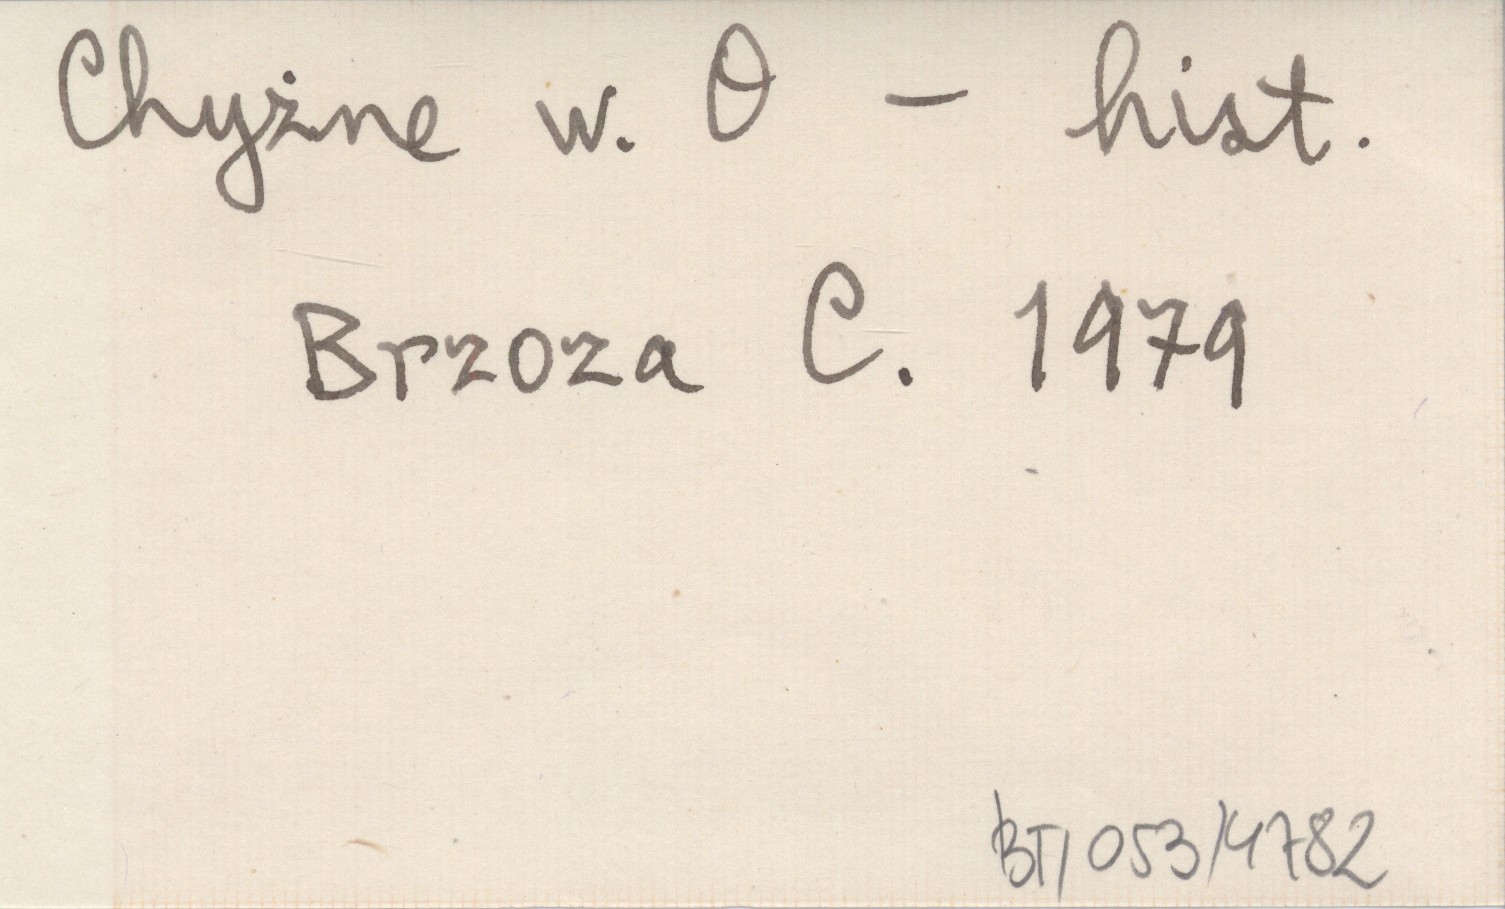 Chyżne w. O - hist.
Brzoza C. 1979
BT/053/4782